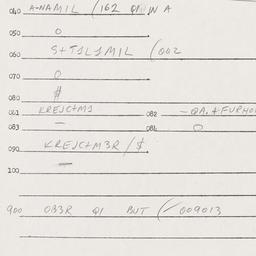 040 A-NAMIL (162 QI W A
050 O
060 S+T1L1MIL (002
070 O
080 #
081 KREJC+M1 — 082 ~QA.+FURHO
083 — 084 O
090 KREJC+M3R / $
100 —
900 OB3R QI BUT (-009013